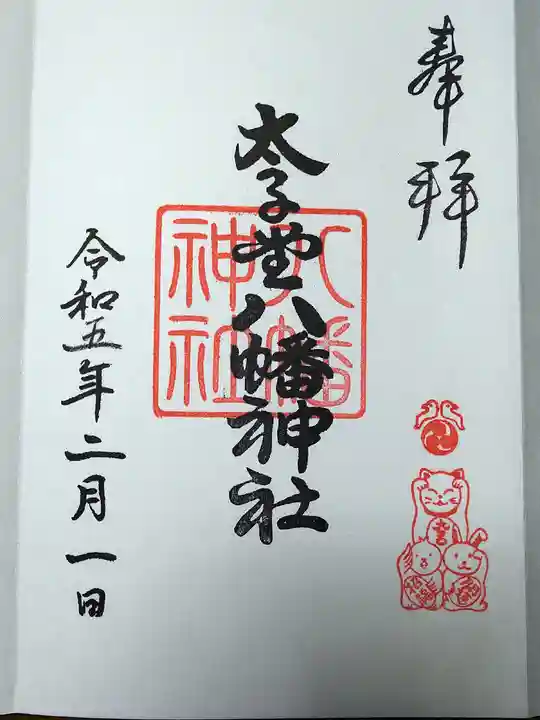 奉拝
太子堂八幡神社
八幡
神社
令和五年二月一日